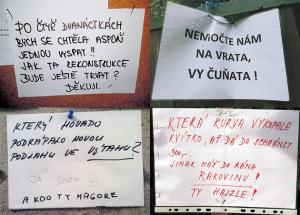 PO ČTYŘ DVANÁCTKÁCH
BICH SE CHTĚLA ASPOŇ
JEDNOU VYSPAT!!
JAK TA REKONSTRUKCE
BUDE JEŠTĚ TRVAT?
DĚKUJI.
NEMOČTE NÁM
NA VRATA,
VY ČUŇATA!
KTERÝ HOVADO
PODRÁPALO NOVOU
PODLAHU VE VÝTAHU?
JA
A KDO TY MAGORE
KTERÁ KURVA VYKOPALA
KVÍTKO, AŤ DÁ DO SCHRÁNKY
300,-
JINAK MÁŠ DO RÁNA
RAKOVINU!
TY HAJZLE!